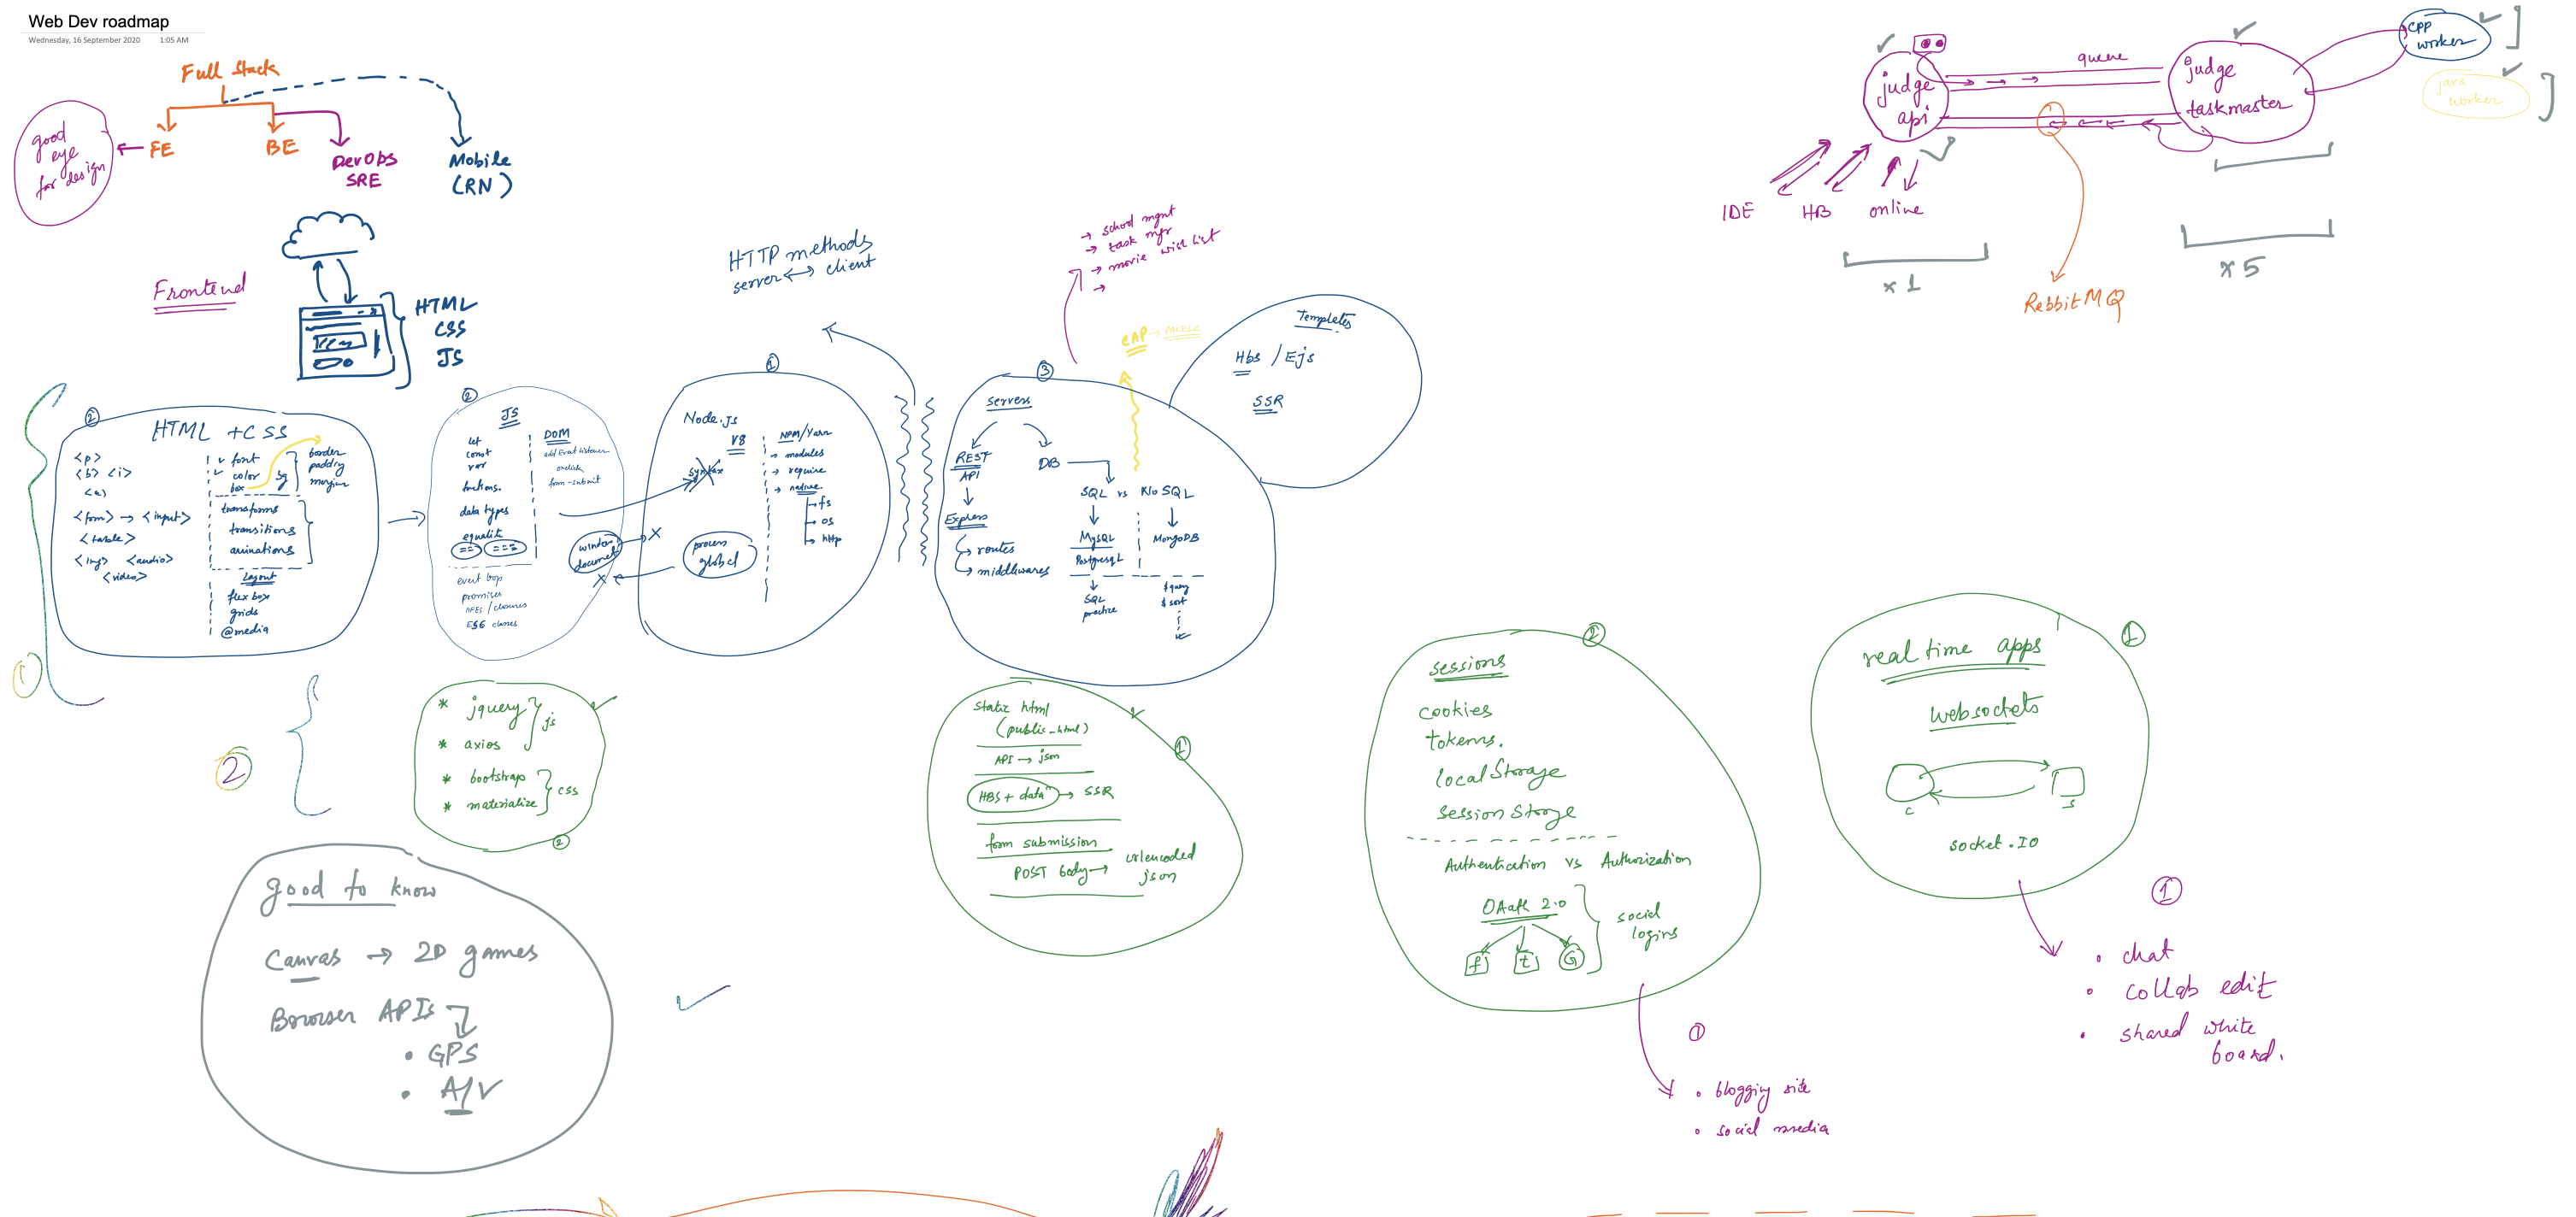 Web Dev roadmap
Wednesday, 16 September 2020 1:05 AM
Full Stack
FE
BE
DevOps
SRE
Mobile
(RN)
good
eye
for design
Frontend
HTML
CSS
JS
HTTP methods
server <-> client
→ school mgnt
→ task mgr
→ movie wish list
→
judge
api
queue
judge
taskmaster
cpp
worker
java
worker
IDE
HB
online
x 1
x 5
RabbitMQ
①
②
HTML + CSS
<p>
<b> <i>
<a>
<form> → <input>
<table>
<img> <audio>
<video>
font
color
box
bg
border
padding
margin
transforms
transitions
animations
Layout
flex box
grids
@media
②
JS
let
const
var
functions.
data types
equality
== ===
event loop
promises
/ closures
ES6 classes
DOM
add Event Listener
onclick
form-submit
window
document
①
Node.js
V8
syntax
process
global
NPM/Yarn
→ modules
→ require
→ native
→ fs
→ os
→ http
③
Servers
REST
API
Express
→ routes
→ middlewares
DB
SQL vs NoSQL
MySQL
PostgresqL
SQL
practice
MongoDB
$query
$sort
CAP → PACELC
Templates
Hbs / Ejs
SSR
②
* jquery
* axios
js
* bootstrap
* materialize
css
②
Static html
(public_html)
API → json
HBS + data → SSR
form submission
POST body → urlencoded
json
①
②
sessions
cookies
tokens.
local Storage
session Storge
Authentication vs Authorization
OAuth 2.0
f t G
social
logins
①
• blogging site
• social media
①
real time apps
websockets
c
s
socket.IO
①
• chat
• collab edit
• shared white
board.
good to know
Canvas → 2D games
Browser APIs
• GPS
• A/V